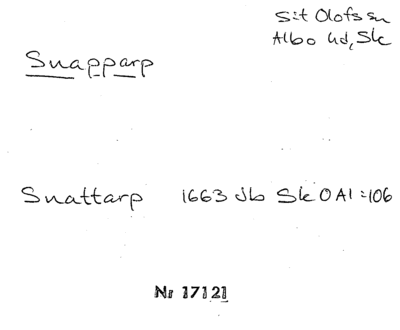 S:t Olofs sn
Albo hd, Sk
Snapparp
Snattarp 1663 Jb Sk O Al :106
Nr 17121